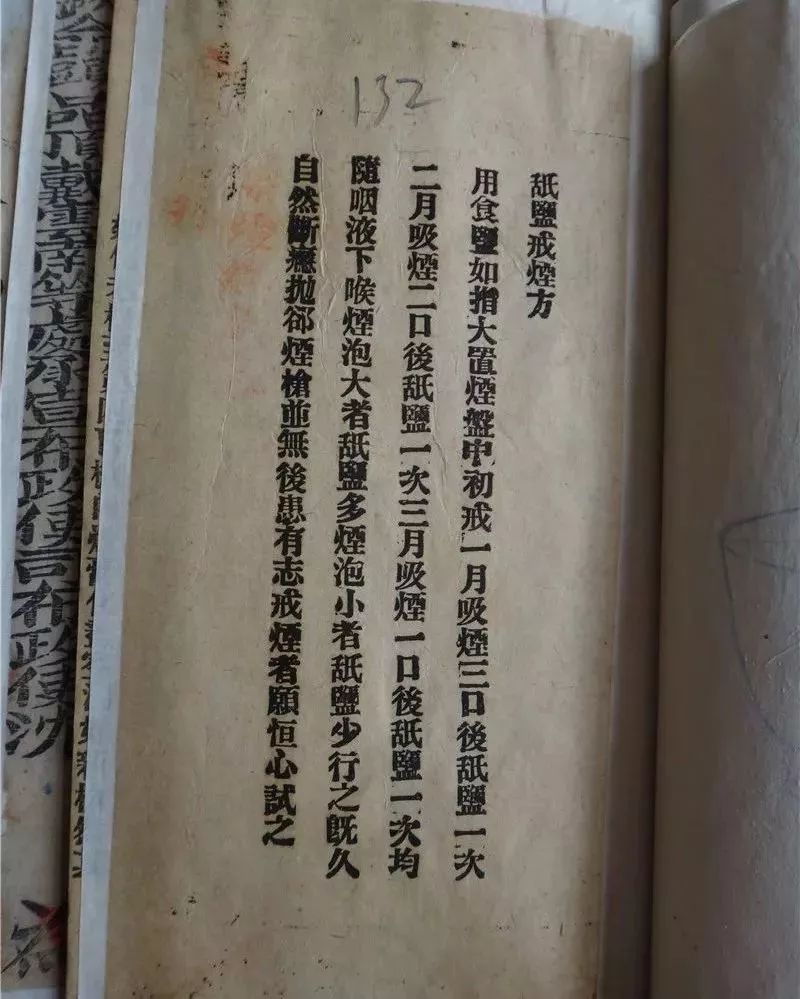 132
舐鹽戒煙方
用食鹽如指大置煙盤中初戒一月吸煙三口後舐鹽一次
二月吸煙二口後舐鹽一次三月吸煙一口後舐鹽一次均
隨咽液下喉煙泡大者舐鹽多煙泡小者舐鹽少行之既久
自然斷癮拋郤煙槍並無後患有志戒煙者願恒心試之
品頂戴
布政使司布政使沈